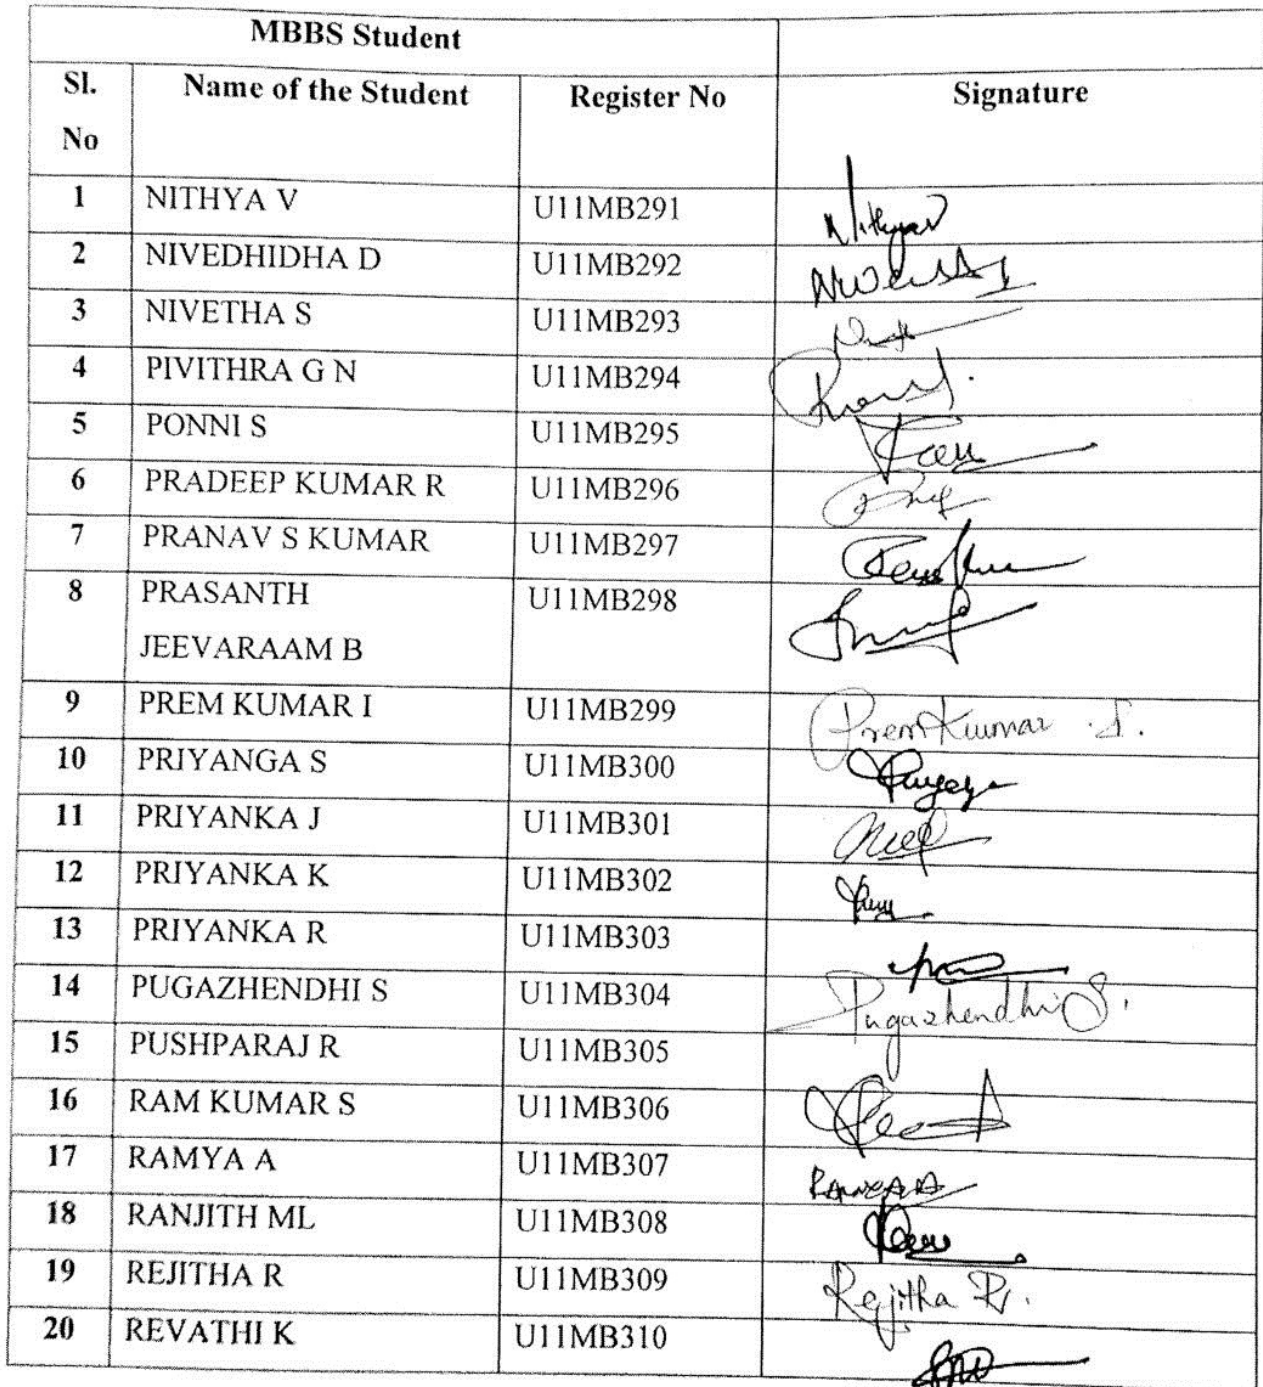 MBBS Student
Sl. No Name of the Student Register No Signature
1 NITHYA V U11MB291 Nithyav
2 NIVEDHIDHA D U11MB292
3 NIVETHA S U11MB293
4 PIVITHRA G N U11MB294
5 PONNI S U11MB295
6 PRADEEP KUMAR R U11MB296
7 PRANAV S KUMAR U11MB297
8 PRASANTH JEEVARAAM B U11MB298
9 PREM KUMAR I U11MB299 Prem Kumar . I.
10 PRIYANGA S U11MB300
11 PRIYANKA J U11MB301
12 PRIYANKA K U11MB302
13 PRIYANKA R U11MB303
14 PUGAZHENDHI S U11MB304 Pugazhendhi S.
15 PUSHPARAJ R U11MB305
16 RAM KUMAR S U11MB306
17 RAMYA A U11MB307
18 RANJITH ML U11MB308
19 REJITHA R U11MB309 Rejitha R.
20 REVATHI K U11MB310